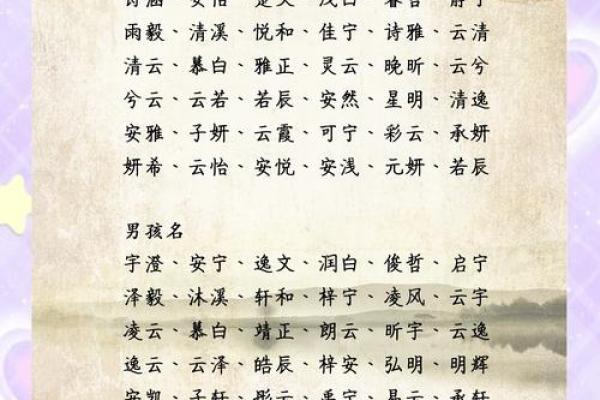 雨毅、清溪、悦和、佳宁、诗雅、云清
清云、慕白、雅正、灵云、晚昕、云兮
兮云、云若、若辰、安然、星明、清逸
安雅、子妍、云霞、可宁、彩云、承妍
妍希、云怡、安悦、安浅、元妍、若辰
男孩名
宇澄、安宁、逸文、润白、俊哲、启宁
泽毅、沐溪、轩和、梓宁、凌风、云宇
凌云、慕白、靖正、朗云、昕宇、云逸
逸云、云泽、皓辰、梓安、弘明、明辉
安凯、子轩、彤云、禹宁、易云、承轩